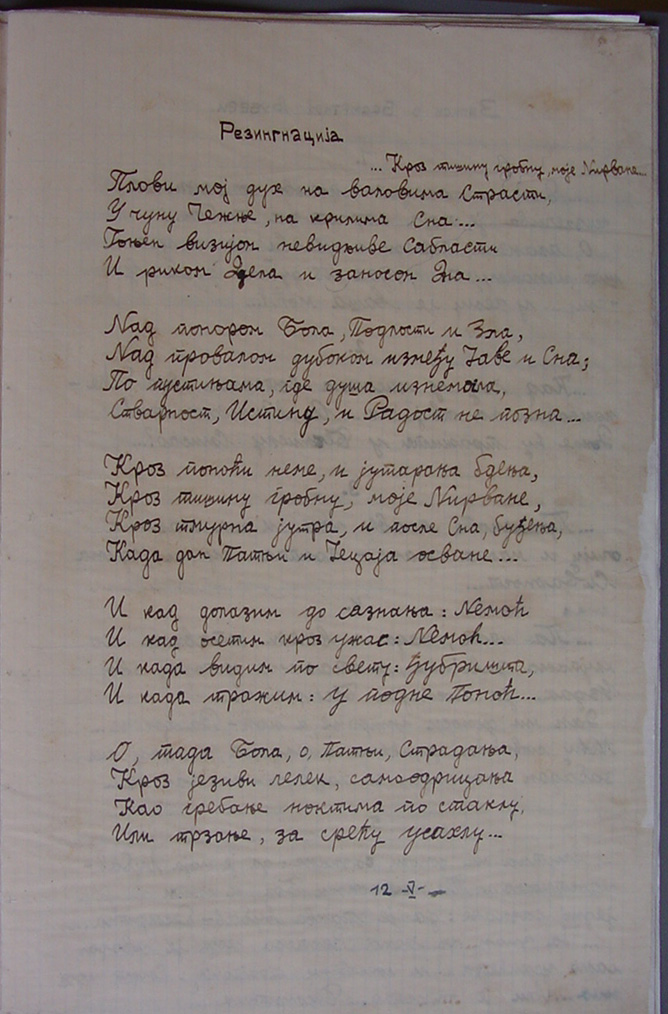 Резингнација
... Кроз тишину гробну, моје Нирване...
Плови мој дух на валовима Страсти,
У чуну Чежње, на крилима Сна...
Гоњен визијом невидљиве Сабласти
И риком Дела и заносом Зла...
Над понором Бола, Подлости и Зла,
Над провалом дубоком између Јаве и Сна;
По пустињама, где душа изнемогла,
Стварност, Истину, и Радост не позна...
Кроз поноћи неме, и јутарања бдења,
Кроз тишину гробну, моје Нирване,
Кроз тмурна јутра, и после Сна, буђења,
Када дан Патњи и Јецаја освane...
И кад долазим до сазнања: Немоћ
И кад осетим кроз ужас: Немоћ...
И када видим по свету: Ђубришта,
И када тражим: у подне Поноћ...
О, тада Бола, о, Патњи, Страдања,
Кроз језиви лелек, самоодрицања
Као гребање ноктима по стаклу,
Или трзање, за срећу усахлу...
12 -V-